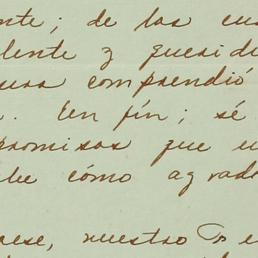 nte; de las cua
lente y querid
sura comprendió
. En fin; sé
promisos que u
be cómo agrade
aese, nuestro P e